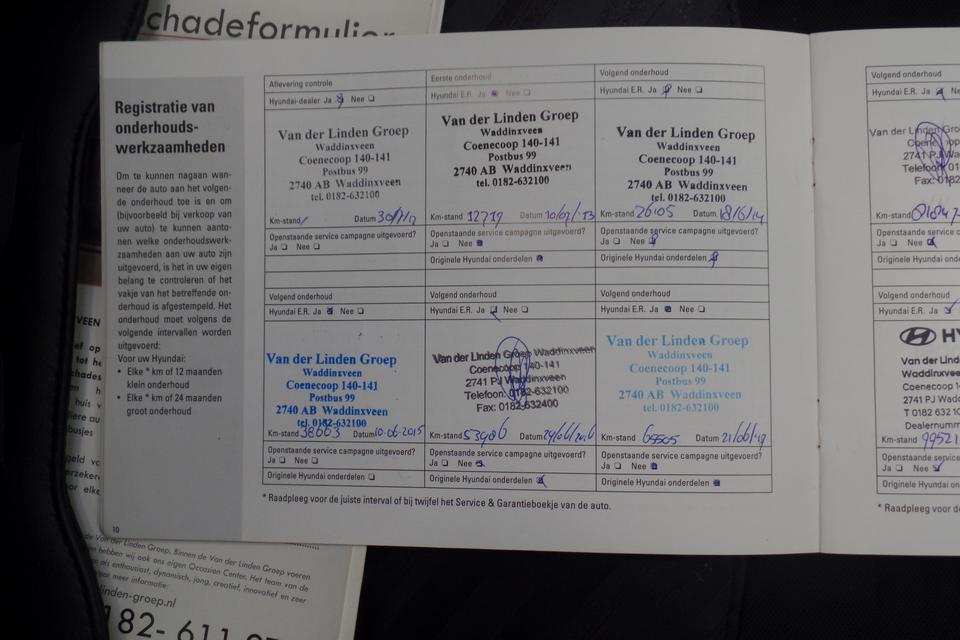 chadeformulier
Registratie van
onderhouds-
werkzaamheden
Om te kunnen nagaan wan-
neer de auto aan het volgen-
de onderhoud toe is en om
(bijvoorbeeld bij verkoop van
uw auto) te kunnen aanto-
nen welke onderhoudswerk-
zaamheden aan uw auto zijn
uitgevoerd, is het in uw eigen
belang te controleren of het
vakje van het betreffende on-
derhoud is afgestempeld. Het
onderhoud moet volgens de
volgende intervallen worden
uitgevoerd:
Voor uw Hyundai:
• Elke * km of 12 maanden
klein onderhoud
• Elke * km of 24 maanden
groot onderhoud
10
Aflevering controle
Hyundai-dealer Ja Nee
Van der Linden Groep
Waddinxveen
Coenecoop 140-141
Postbus 99
2740 AB Waddinxveen
tel. 0182-632100
Km-stand Datum
Openstaande service campagne uitgevoerd?
Ja Nee
Eerste onderhoud
Hyundai E.R. Ja Nee
Van der Linden Groep
Waddinxveen
Coenecoop 140-141
Postbus 99
2740 AB Waddinxveen
tel. 0182-632100
Km-stand 12719 Datum 10/07/13
Openstaande service campagne uitgevoerd?
Ja Nee
Originele Hyundai onderdelen
Volgend onderhoud
Hyundai E.R. Ja Nee
Van der Linden Groep
Waddinxveen
Coenecoop 140-141
Postbus 99
2740 AB Waddinxveen
tel. 0182-632100
Km-stand 26105 Datum 18/6/14
Openstaande service campagne uitgevoerd?
Ja Nee
Originele Hyundai onderdelen
Volgend onderhoud
Hyundai E.R. Ja Nee
Van der Linden Groep
Waddinxveen
Coenecoop 140-141
Postbus 99
2740 AB Waddinxveen
tel. 0182-632100
Km-stand 38003 Datum 10-06-2015
Openstaande service campagne uitgevoerd?
Ja Nee
Originele Hyundai onderdelen
Volgend onderhoud
Hyundai E.R. Ja Nee
Van der Linden Groep Waddinxveen
Coenecoop 140-141
2741 PJ Waddinxveen
Telefoon: 0182-632100
Fax: 0182-632400
Km-stand 53486 Datum
Openstaande service campagne uitgevoerd?
Ja Nee
Originele Hyundai onderdelen
Volgend onderhoud
Hyundai E.R. Ja Nee
Van der Linden Groep
Waddinxveen
Coenecoop 140-141
Postbus 99
2740 AB Waddinxveen
tel. 0182-632100
Km-stand Datum
Openstaande service campagne uitgevoerd?
Ja Nee
Originele Hyundai onderdelen
* Raadpleeg voor de juiste interval of bij twijfel het Service & Garantieboekje van de auto.
Volgend onderhoud
Hyundai E.R. Ja Ne
Van der Linden Gro
2741 PJ Wa
Telefoon: 01
Fax: 0182
Km-stand
Openstaande service c
Ja Nee
Originele Hyundai onde
Volgend onderhoud
Hyundai E.R. Ja Ne
HY
Van der Linde
Van der Linde
Coenecoop 1
2741 PJ Wa
T 0182 632 10
Dealernumm
Km-stand 99521
Openstaande service
Ja Nee
Originele Hyundai ond
* Raadpleeg voor d
de Van der Linden Groep. Binnen de Van der Linden Groep voeren
hebben wij ook ons eigen Occasion Center. Het team van de
als enthousiast, dynamisch, jong, creatief, innovatief en zeer
meer informatie:
linden-groep.nl
182- 611